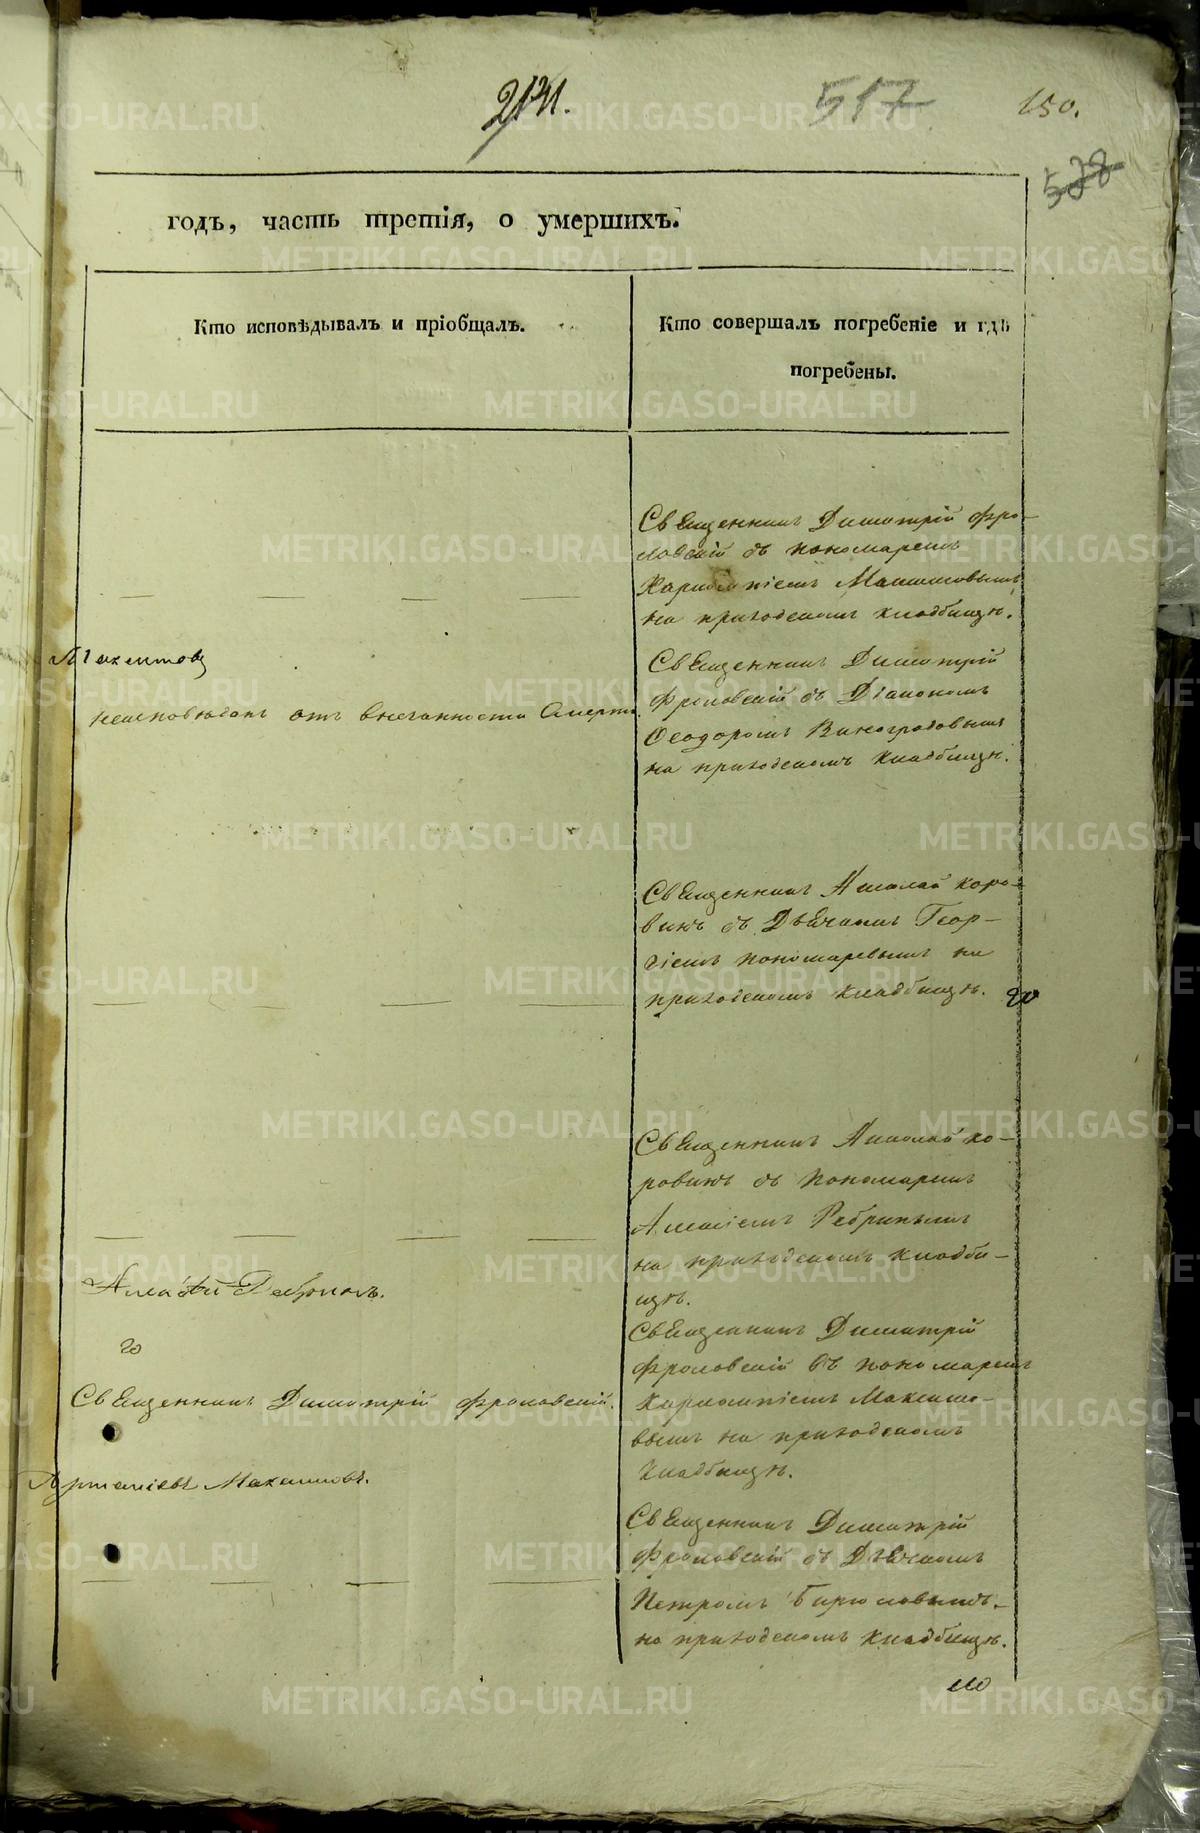 2131.
517
150.
528
годъ, часть третія, о умершихъ.
Кто исповѣдывалъ и пріобщалъ.
Кто совершалъ погребеніе и гдѣ
погребены.
Священникъ Димитрій Фро-
ловскій съ пономаремъ
Харлампіемъ Максимовымъ
на приходскомъ кладбищѣ.
Неисповѣданъ отъ внезапности Смерти.
Священникъ Димитрій
Фроловскій съ Діакономъ
Ѳеодоромъ Виноградовымъ
на приходскомъ кладбищѣ.
Священникъ Николай Коро-
винъ съ Дьячкомъ Геор-
гіемъ Пономаревымъ на
приходскомъ кладбищѣ.
го
Священникъ Николай Ко-
ровинъ съ пономаремъ
Алексіемъ Ребринымъ
на приходскомъ кладби-
щѣ.
го
Священникъ Димитрій Фроловскій.
Священникъ Димитрій
Фроловскій съ пономаремъ
Харлампіемъ Максимо-
вымъ на приходскомъ
кладбищѣ.
Максимовъ.
Священникъ Димитрій
Фроловскій съ Дьячкомъ
Петромъ Бирюковымъ.
на приходскомъ кладбищѣ.
METRIKI.GASO-URAL.RU